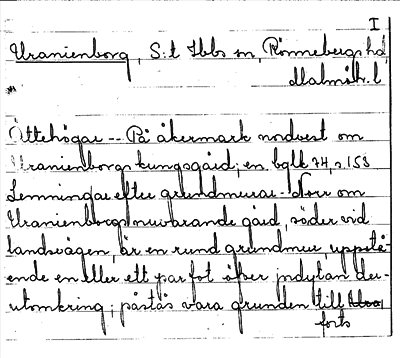 I
Uranienborg, S:t Ibbs sn, Rönnebergs hd,
Malmöh. l
Åttehögar -- På åkermark nordvest om
Uranienborgs kungsgård, en, bglk 74, s. 158
Lemningar efter grundmurar. Norr om
Uranienborgs nuvarande gård, söder vid
landsvägen, är en rund grundmur, uppstå-
ende en eller ett par fot öfver jordytan der-
utomkring, påstås vara grunden till
forts